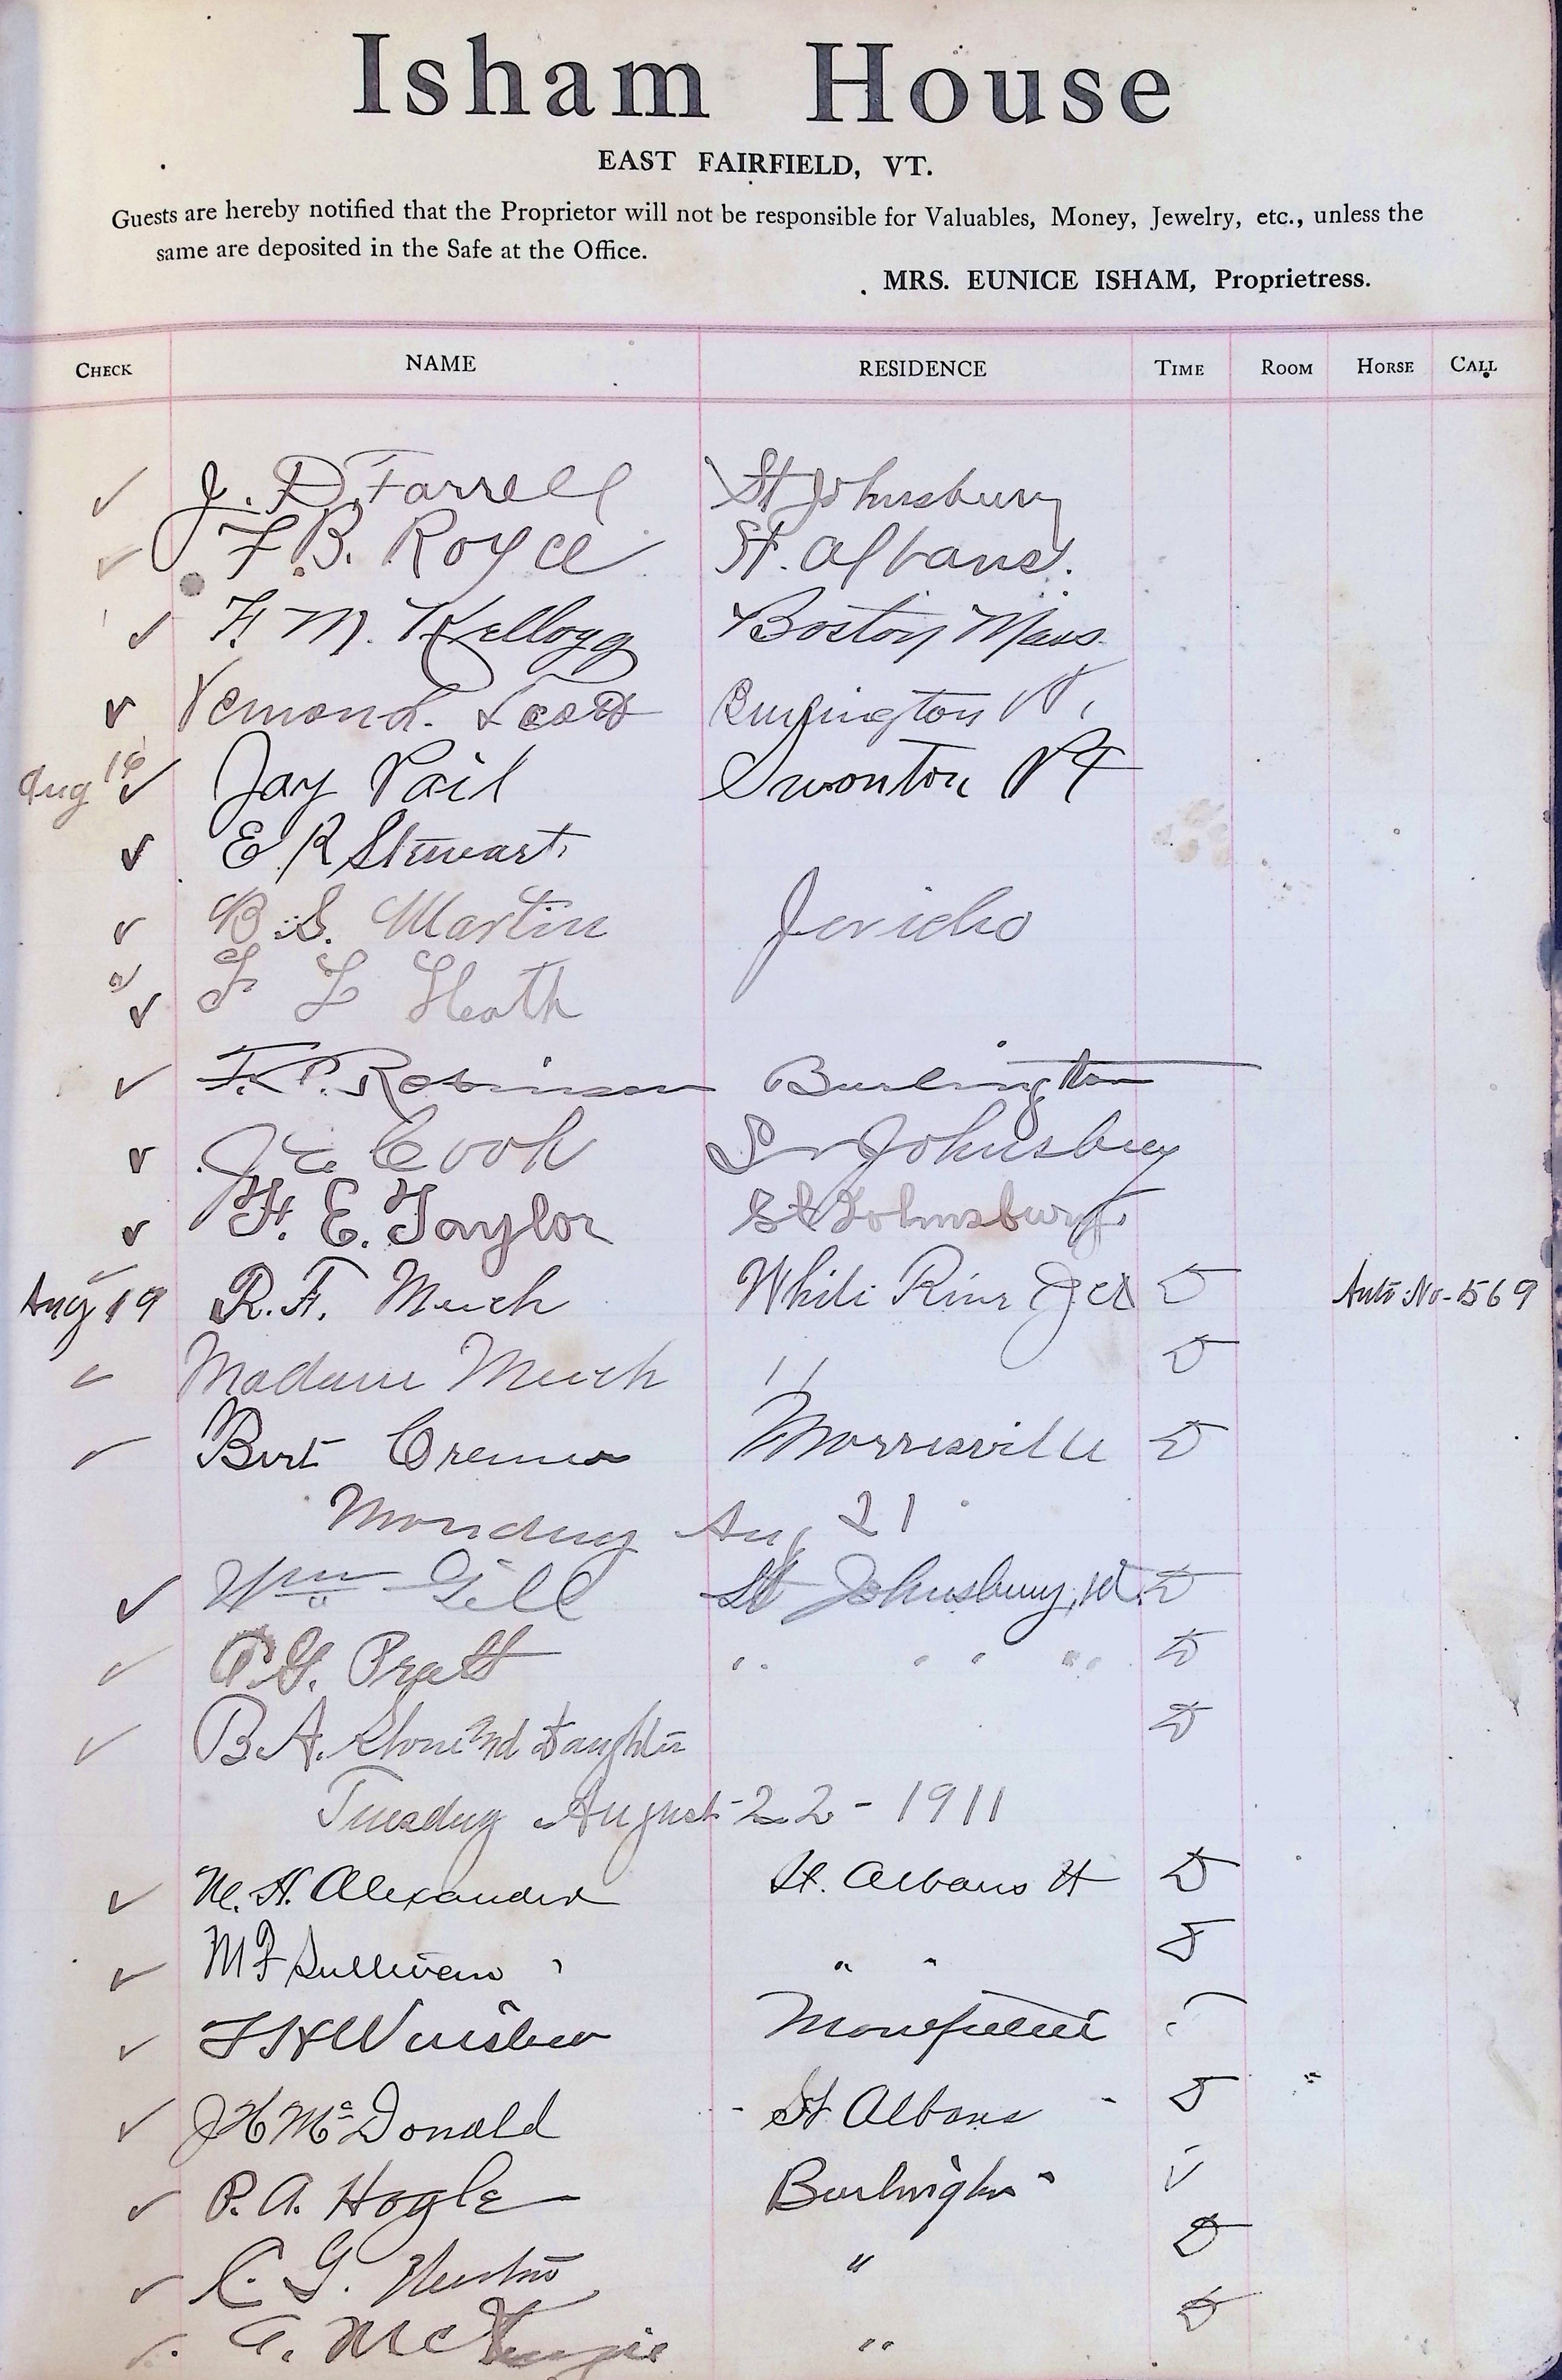 Isham House
EAST FAIRFIELD, VT.
Guests are hereby notified that the Proprietor will not be responsible for Valuables, Money, Jewelry, etc., unless the
same are deposited in the Safe at the Office.
MRS. EUNICE ISHAM, Proprietress.
CHECK NAME RESIDENCE TIME ROOM HORSE CALL
✓ J. D. Farrell St Johnsbury
✓ F. B. Royce St. Albans.
✓ F. M. Kellogg Boston Mass.
✓ Burlington Vt,
Aug 16 ✓ Jay Vail Swonton Vt
✓ E R Stewart
✓ B. S. Martin Jericho
✓ F L Heath
✓ F. P. Robinson Burlington
✓ Cook St Johnsbury
✓ H. E. Taylor St Johnsbury
Aug 19 R. F. Much White River Jct D Auto No. 569
✓ Madame Much " D
✓ Bert Morrisville D
Monday Aug 21
✓ Wm Gill St Johnsbury, Vt. D
✓ Pratt " " " D
✓ B. A. Stone and daughter D
Tuesday August 22 - 1911
✓ M. H. Alexander St. Albans Vt D
✓ M F Sullivan " " D
✓ F H
✓ J H McDonald St Albans D
✓ P. A. Hogle Burlington ✓
✓ C. G. " D
✓ A. McKenzie " D